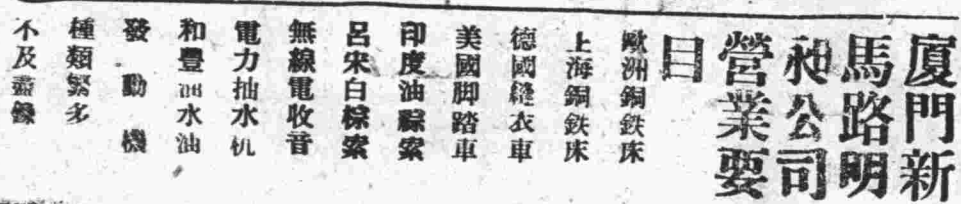 廈門新
馬路明
昶公司
營業要
目
歐洲銅鉄床
上海銅鉄床
德國縫衣車
美國脚踏車
印度油綜索
呂宋白棕索
無線電收音
電力抽水机
和豐油水油
發動機
種類緊多
不及盡錄